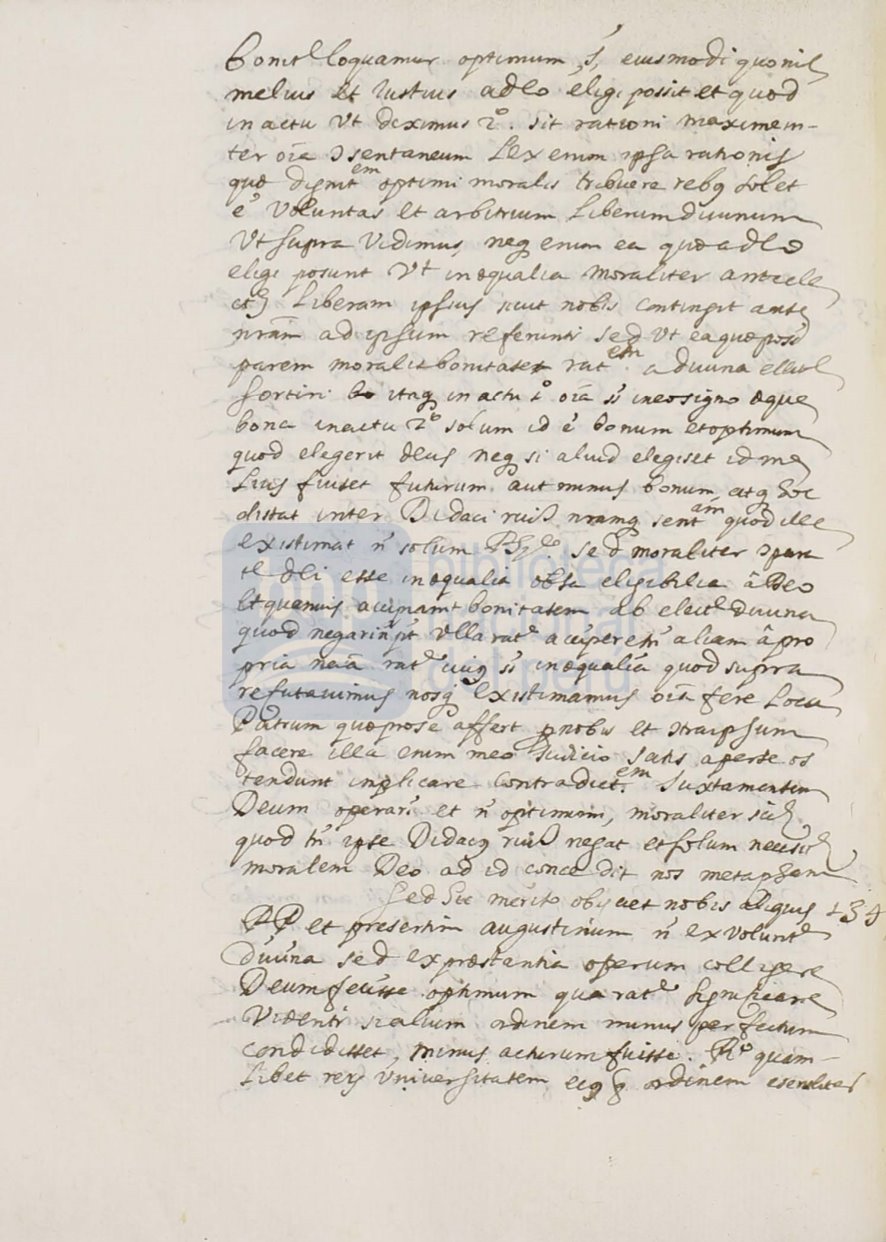 bonit.e loquamur optimum, s, eiusmodi quo nil
melius et iustius a deo eligi possit et quod
in actu ut diximus 2º. sit rationi maxime in-
ter oīa Ɔsentaneum Lex enim ipsa rationis
quæ dignit.em optimi moralis tribuere rebꝯ solet
ē voluntas et arbitrium liberum divinum
ut supra vidimus, neq enim ea quæ a deo
eligi posunt ut inæqualia moraliter ante
liberam ipsius sicut nobis contingit ante
nrām ad ipsum referuntr sed ut ea quæ
parem moralis bonitatis rat.em a divina
sortiri itaq in actu 1º oīa in eo signo æque
bona in actu 2º solum id ē bonum et optimum
quod elegerit deus neq si aliud elegiset id me
lius fuiset futurum aut minus bonum atq hoc
distat inter Didaci ruis nramq sent.am quod ille
existimat n̄ solum Phy.ce sed moraliter Ɔpara
te dei esse inæqualia obta eligibilia â Deo
et quamuis accipiant bonitatem ab elect.e divina
quod negari n̄ pt ulla rat.e accipere tn̄ aliam â pro
pria naā rat.e cuiꝯ inæqualia quod supra
refutavimus nosq existimamus oīa fere Loca
Patrum quæ pro se affert p nobis et Ɔtra ipsum
facere illa enim meo iudicio satis aperte os
tendunt implicare contradict.em iuxtamentem
Deum operari et n̄ optimum, moraliter
quod tn̄ ipse Didacꝯ ruis negat et solum
moralem Deo ad id concedit nos metaphem
Sed Sic merito obijciet nobis aliquis 134
PP et presertim augustinum n̄ ex volunt.e
divina sed ex præstantia operum colligere
Deum fecisse optimum qua rat.e significare
videntr si alium ordinem minus perfectum
condidisset, minus acturum fuisse. R.º quam-
libet rerū universitatem eiꝯq ordinem